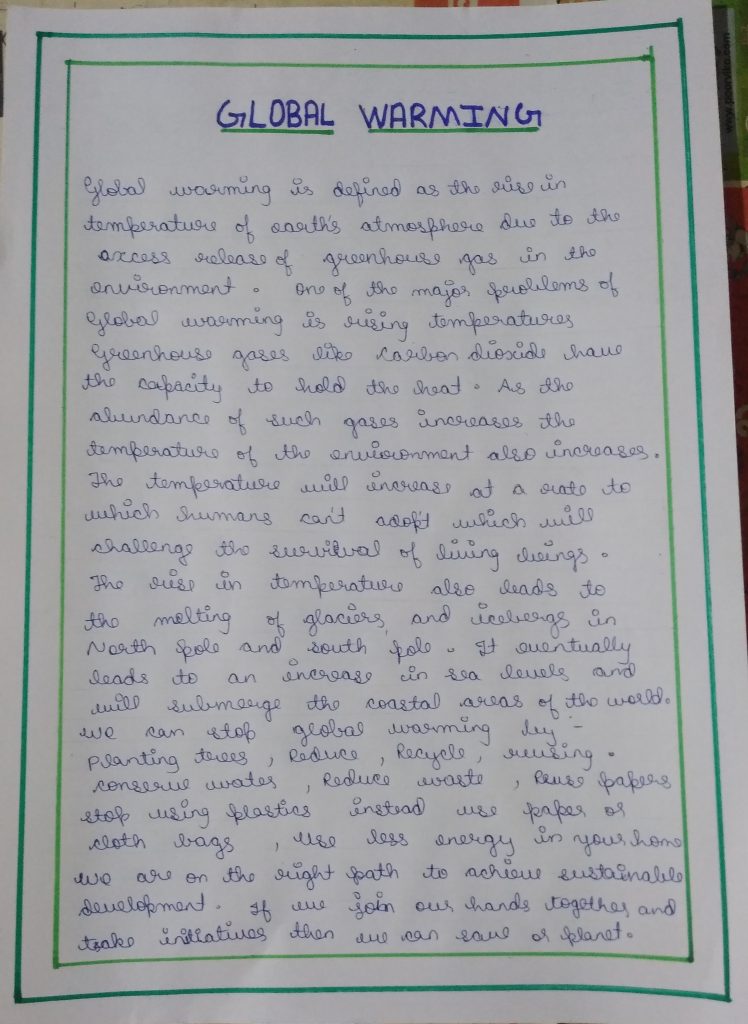 GLOBAL WARMING
Global warming is defined as the rise in
temperature of earth's atmosphere due to the
axcess release of greenhouse gas in the
environment. One of the major problems of
Global warming is rising temperatures
Greenhouse gases like carbon dioxide have
the capacity to hold the heat. As the
abundance of such gases increases the
temperature of the environment also increases.
The temperature will increase at a rate to
which humans can't adopt which will
challenge the survival of living beings.
The rise in temperature also leads to
the melting of glaciers, and icebergs in
North pole and south pole. It eventually
leads to an increase in sea levels and
will submerge the coastal areas of the world.
we can stop global warming by -
planting trees, Reduce, Recycle, reusing.
conserve water, Reduce waste, Reuse papers
stop using plastics instead use paper or
cloth bags, use less energy in your home
we are on the right path to achieve sustainable
development. If we join our hands together and
take initiatives then we can save or planet.